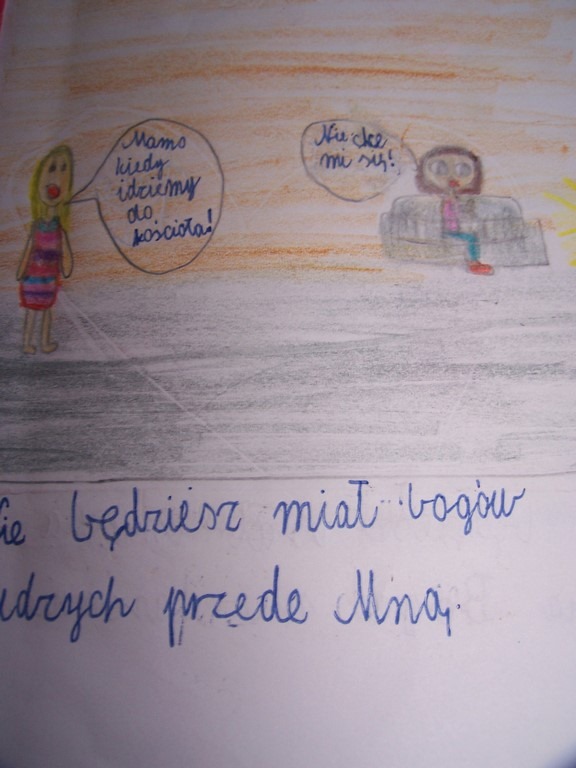 Mamo
kiedy
idziemy
do
kościoła!
Nie chce
mi się!
ie będziesz miał bogów
udzych przede Mną.